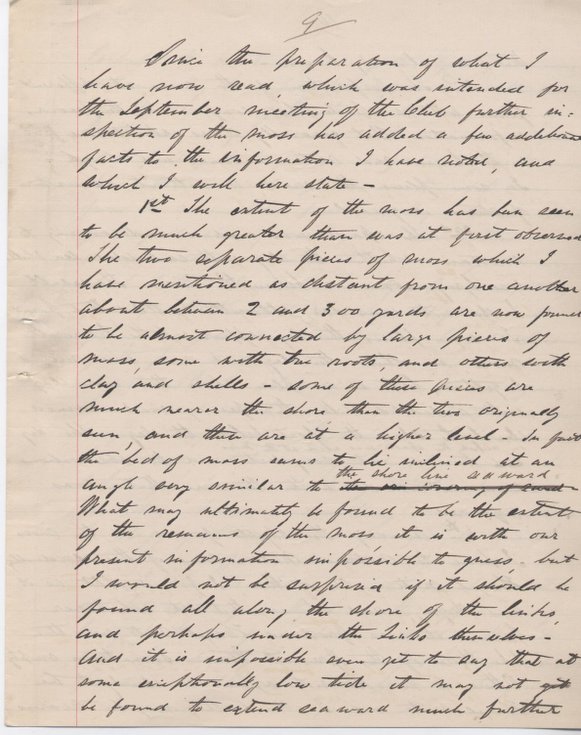 9
Since the preparation of what I
have now read, which was intended for
the September meeting of the Club further in=
spection of the moss has added a few additional
facts to the information I have noted, and
which I will here state -
1st The extent of the moss has been seen
to be much greater than was at first observed
The two separate pieces of moss which I
have mentioned as distant from one another
about between 2 and 300 yards are now found
to be almost connected by large pieces of
moss, some with tree roots, and others with
clay and shells - some of these pieces are
much nearer the shore than the two originally
seen, and these are at a higher level - In fact
the bed of moss seems to be inclined at an
the shore line seaward
angle very similar to the covering of sand -
What may ultimately be found to be the extent
of the remains of the moss it is with our
present information impossible to guess, but
I would not be surprised if it should be
found all along the shore of the links,
and perhaps under the links themselves -
And it is impossible even yet to say that at
some exceptionally low tide it may not yet
be found to extend seaward much further